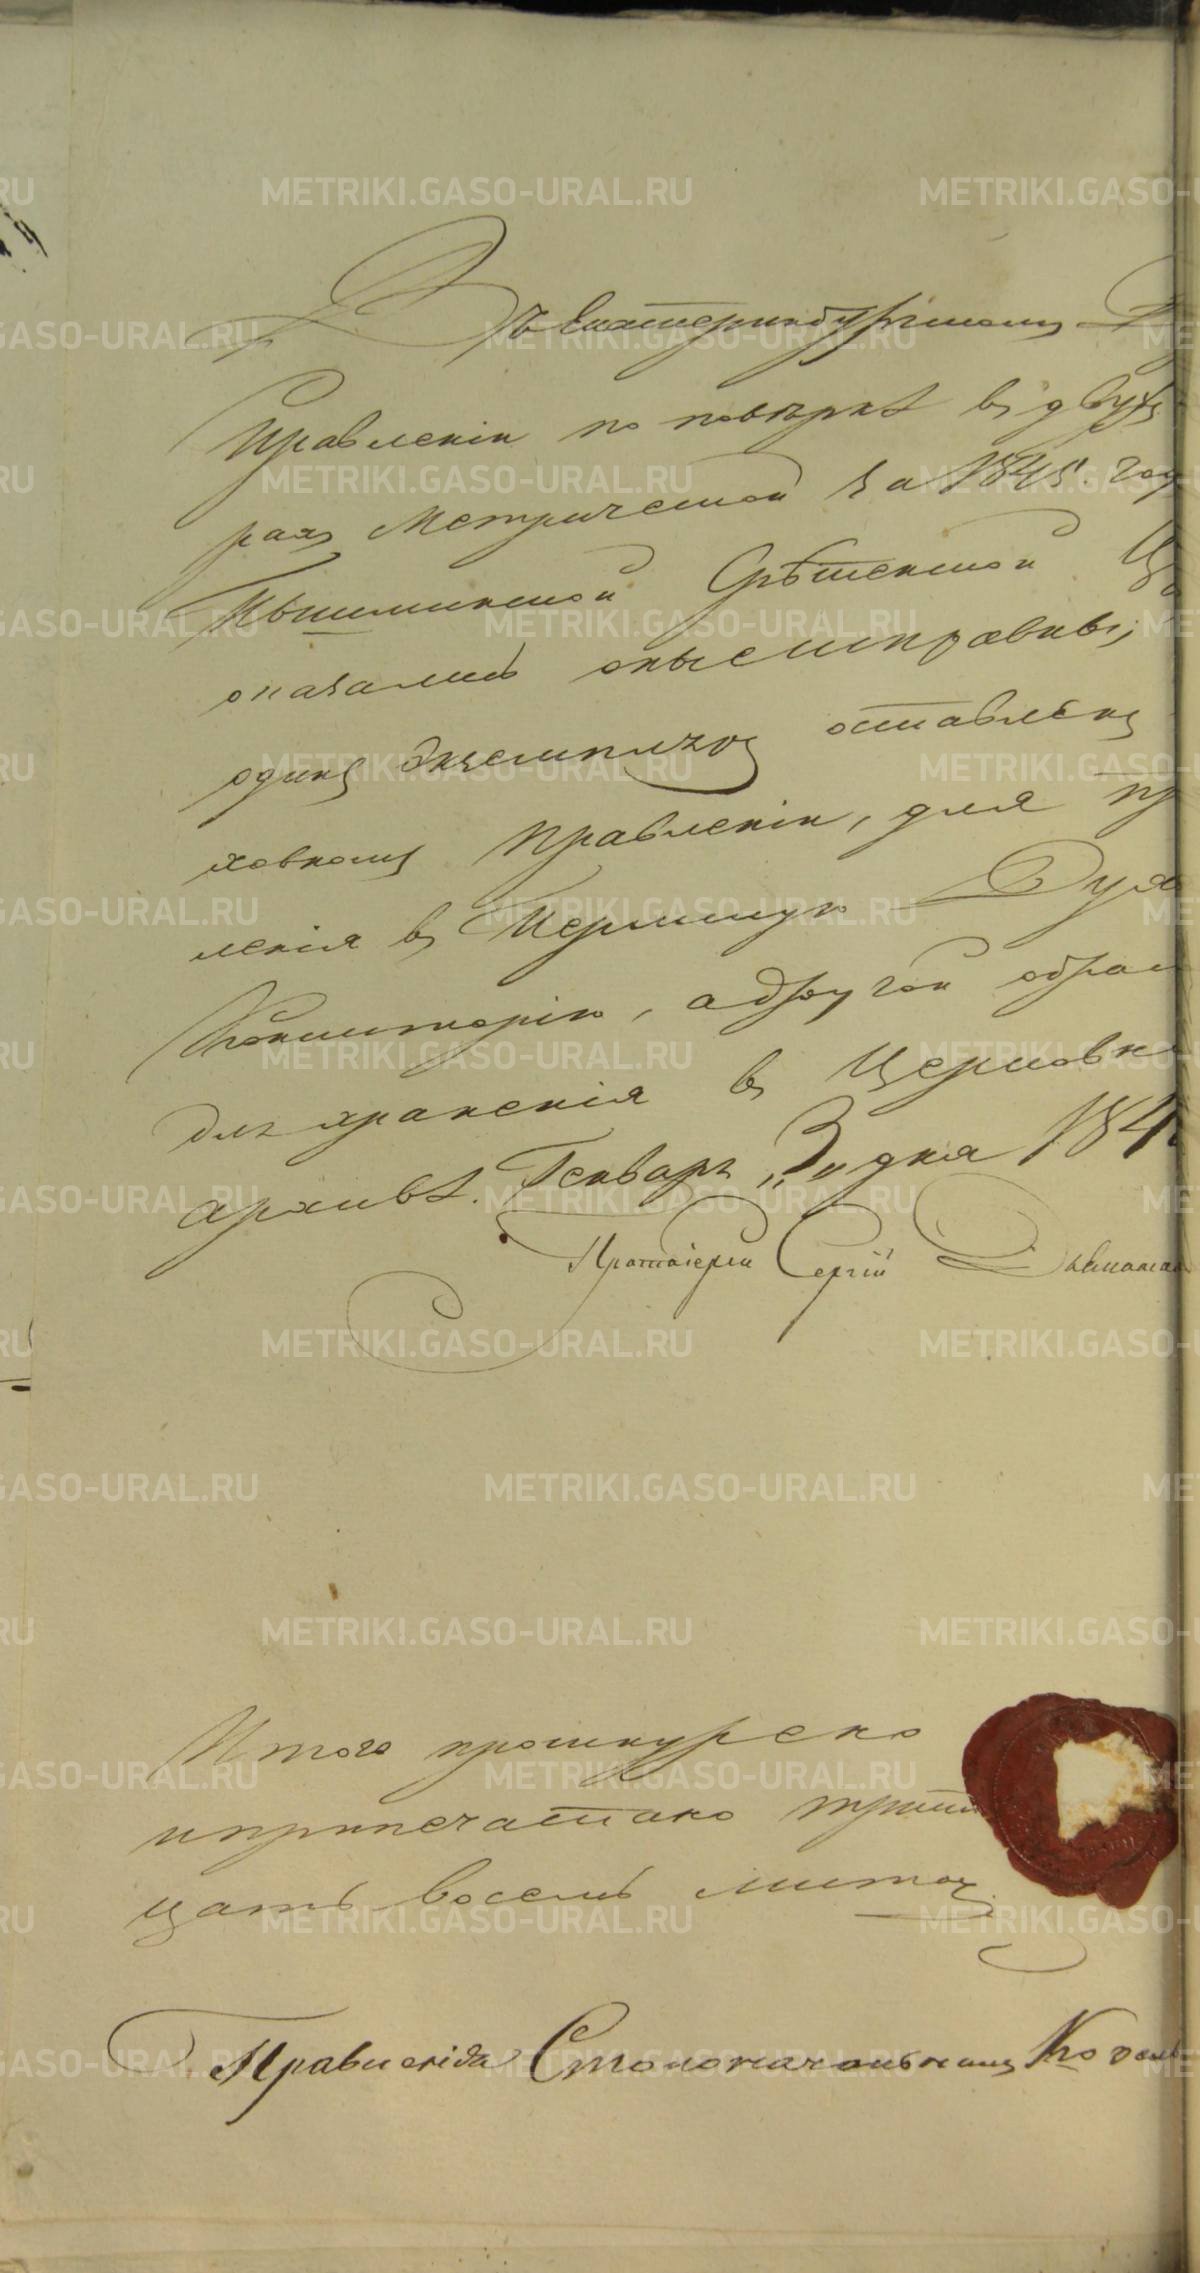 Въ Екатеринбургскомъ Д
Правленiи по повѣркѣ въ двухъ
ряхъ Метрической за 1845. год
Пышминской Срѣтенской Це
оказались оные исправны;
одинъ экземпляръ оставленъ
ховномъ Правленiи, для пр
ленiя въ Пермскую Духо
Консисторiю, а другой обращ
для храненiя въ Церковно
архивѣ. Генваря „3„ дня 184
Протоiерей Сергiй
Итого прошнуровано
и припечатано трит
цать восемь листовъ.
Правленiя Столоначальникъ
METRIKI.GASO-URAL.RU